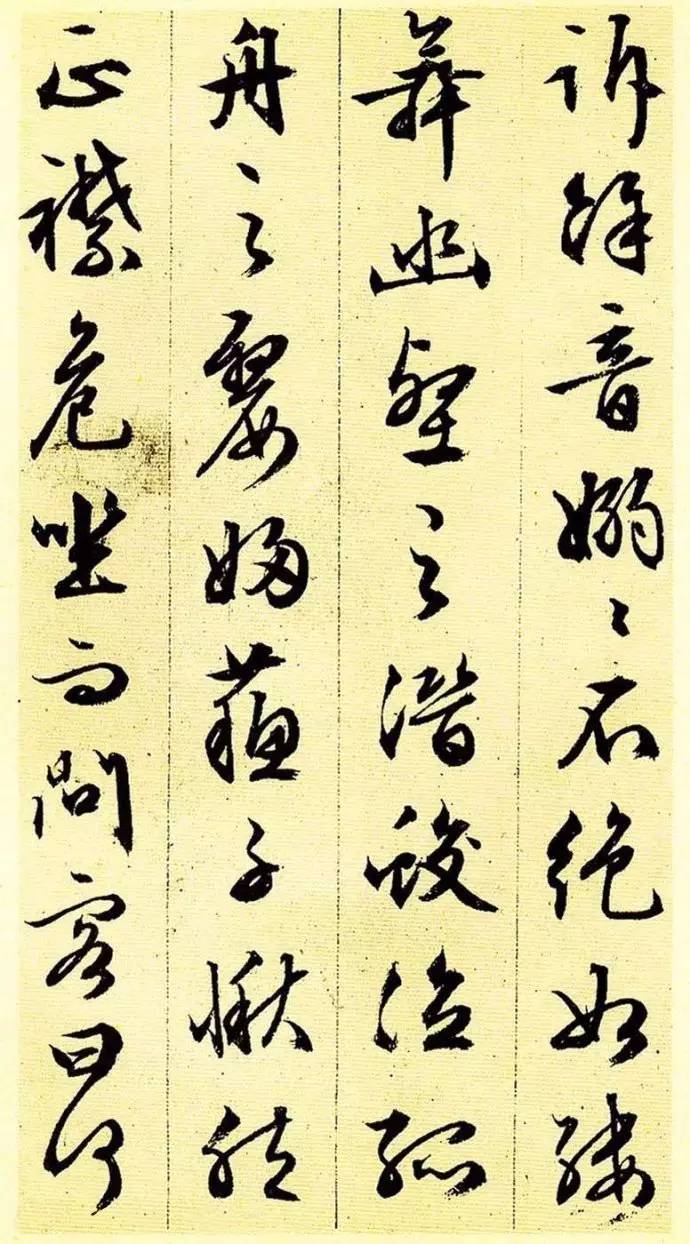 訴餘音嫋〻不絶如縷
舞幽壑之潛蛟泣孤
舟之嫠婦蘇子愀然
正襟危坐而問客曰何